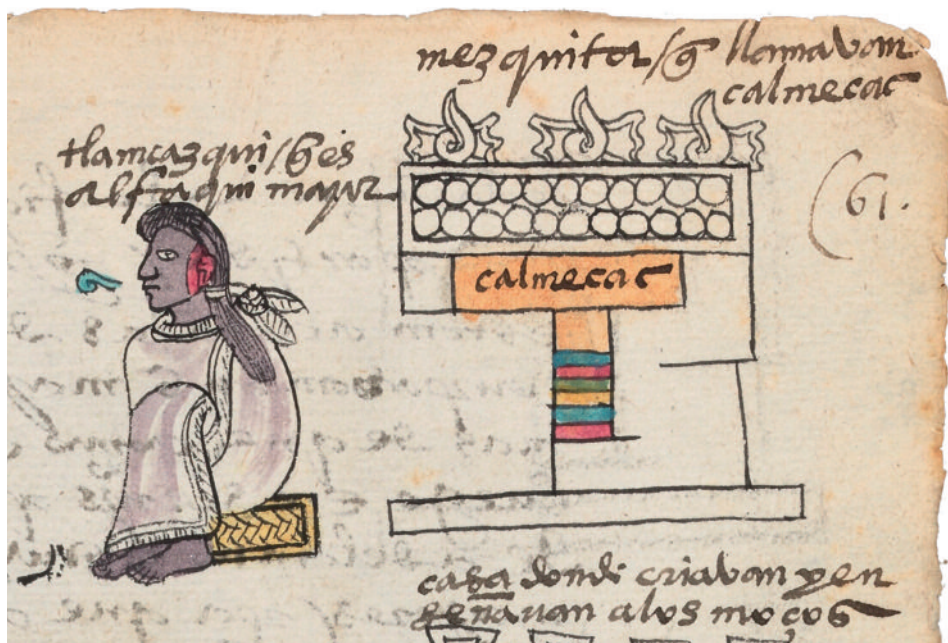 mezquita / q̃ llamavan
calmecac
tlamcazqui / q̃ es
alfaqui mayor
61.
calmecac
casa donde criavan y en
señavan a los moços